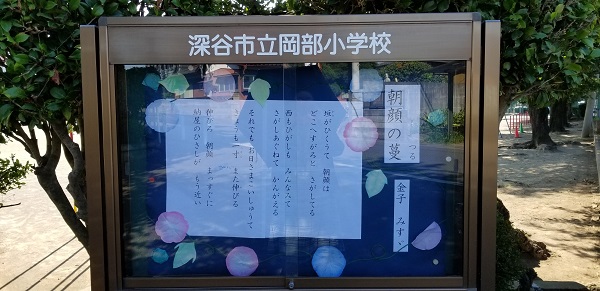 深谷市立岡部小学校
朝顔の蔓
つる
金子 みすゞ
垣がひくうて 朝顔は
どこへすがろと さがしてる
西もひがしも みんなみて
さがしあぐねて かんがえる
それでもお日さまこいしゅうて
きょうも一寸 また伸びる
伸びろ 朝顔 まっすぐに
納屋のひさしが もう近い